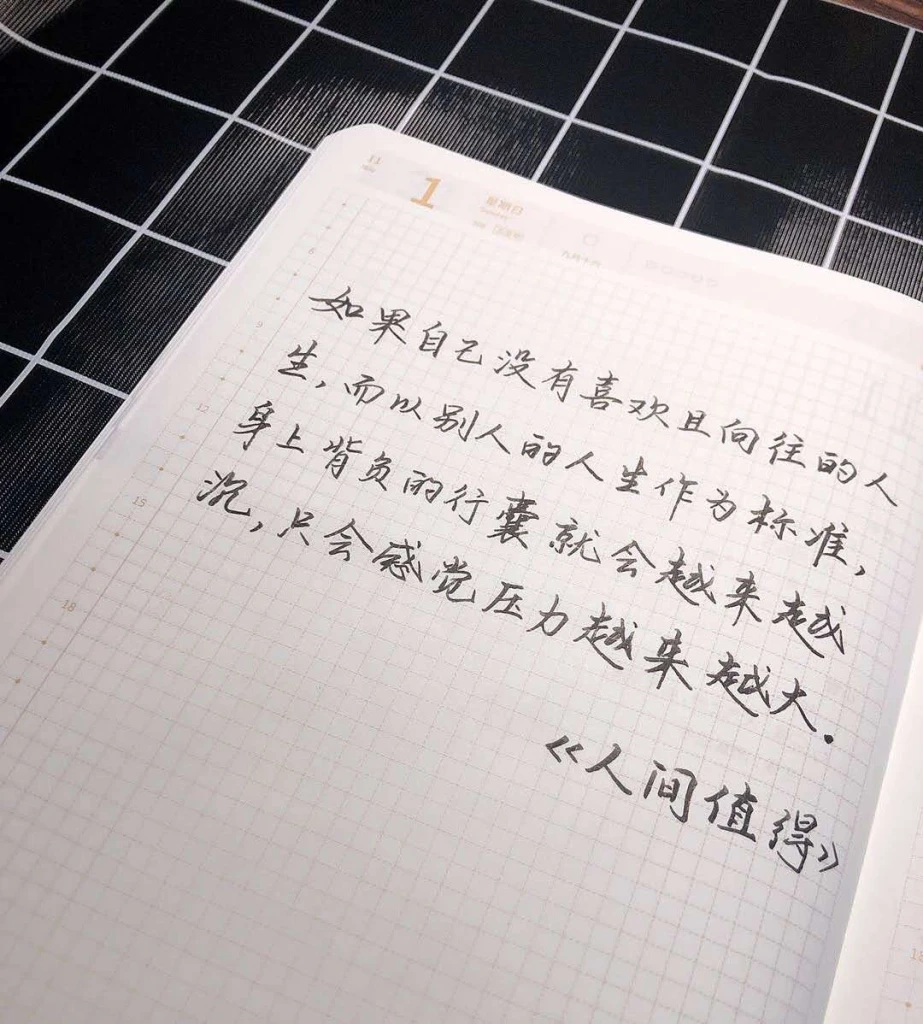 11
1
星期日
如果自己没有喜欢且向往的人
生,而以别人的人生作为标准,
身上背负的行囊就会越来越
沉,只会感觉压力越来越大.
《人间值得》
6
9
12
15
18